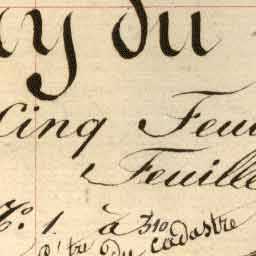 ay du
Cinq Feui
Feuille
No. 1. à 310
du cadastre